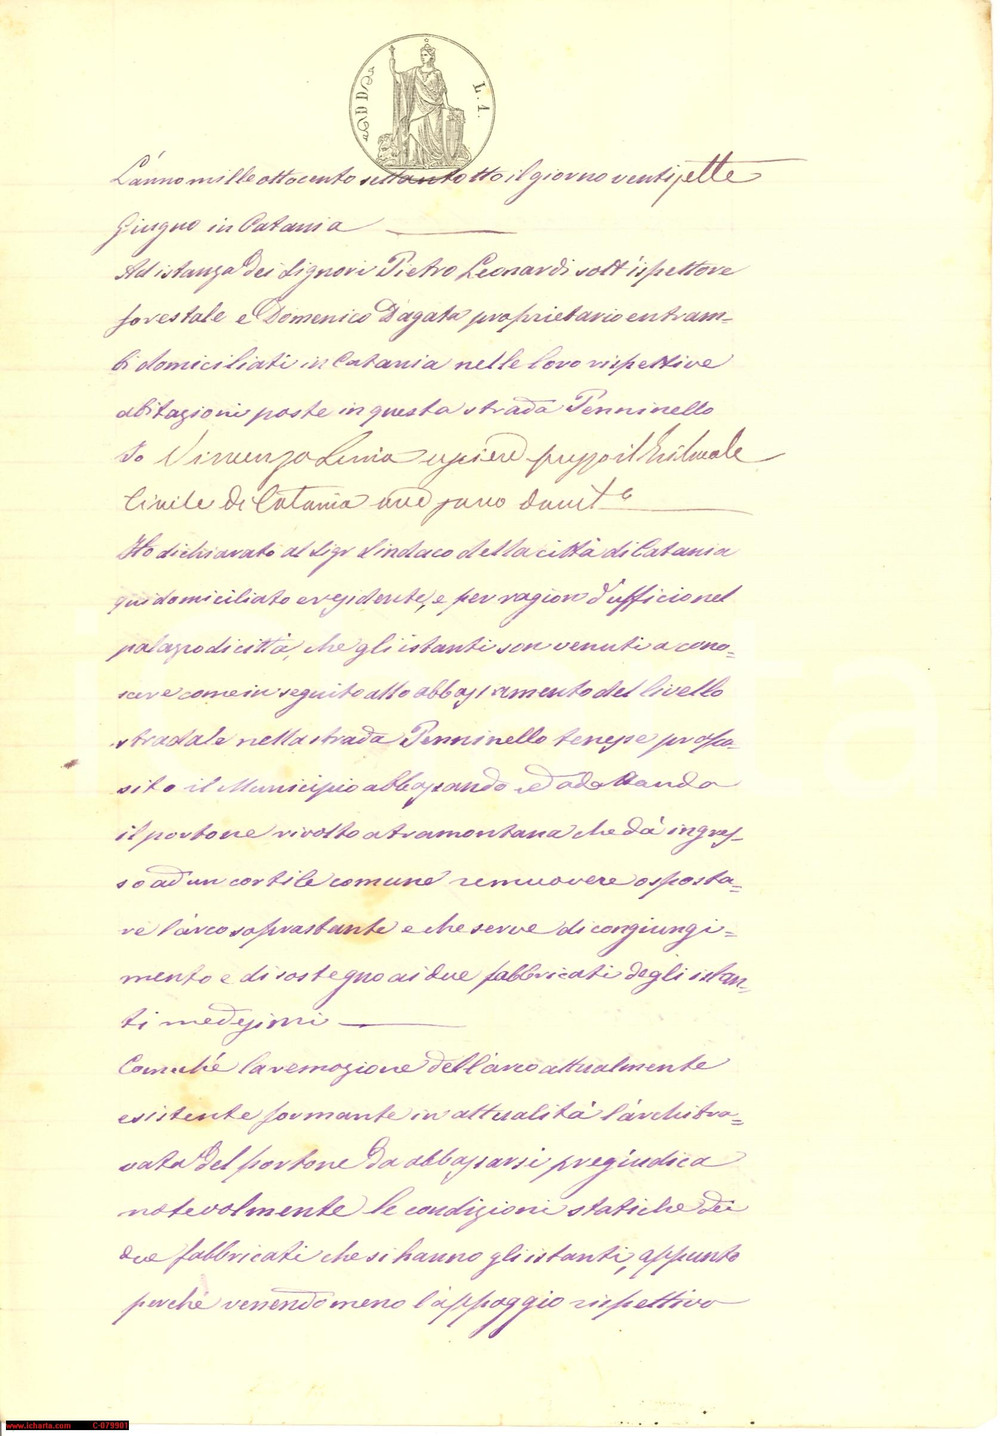 L. 1.
L'anno mille ottocento settantotto il giorno ventisette
Giugno in Catania
Ad istanza dei Signori Pietro Leonardi sott'ispettore
forestale e Domenico D'agata proprietario entram=
bi domiciliati in Catania nelle loro rispettive
abitazioni poste in questa strada Penninello
Io Vincenzo usciere presso il Tribunale
Civile di Catania ove
Ho dichiarato al Sigr Sindaco della città di Catania
qui domiciliato e residente, e per ragion d'ufficio nel
palazzo di città, che gli istanti son venuti a cono=
scere come in seguito allo abbassamento del livello
stradale nella strada Penninello tenesse propo=
sito il Municipio abbassando ed adattando
il portone rivolto a tramontana che dà ingres=
so ad un cortile comune remuovere o sposta=
re l'arco soprastante e che serve di congiungi=
mento e di sostegno ai due fabbricati degli istan=
ti medesimi
Comeché la remozione dell'arco attualmente
esistente formante in attualità l'architra=
vata del portone da abbassarsi pregiudica
notevolmente le condizioni statiche dei
due fabbricati che si hanno gli istanti, appunto
perché venendo meno l'appoggio rispettivo
www.icharta.com C-079901